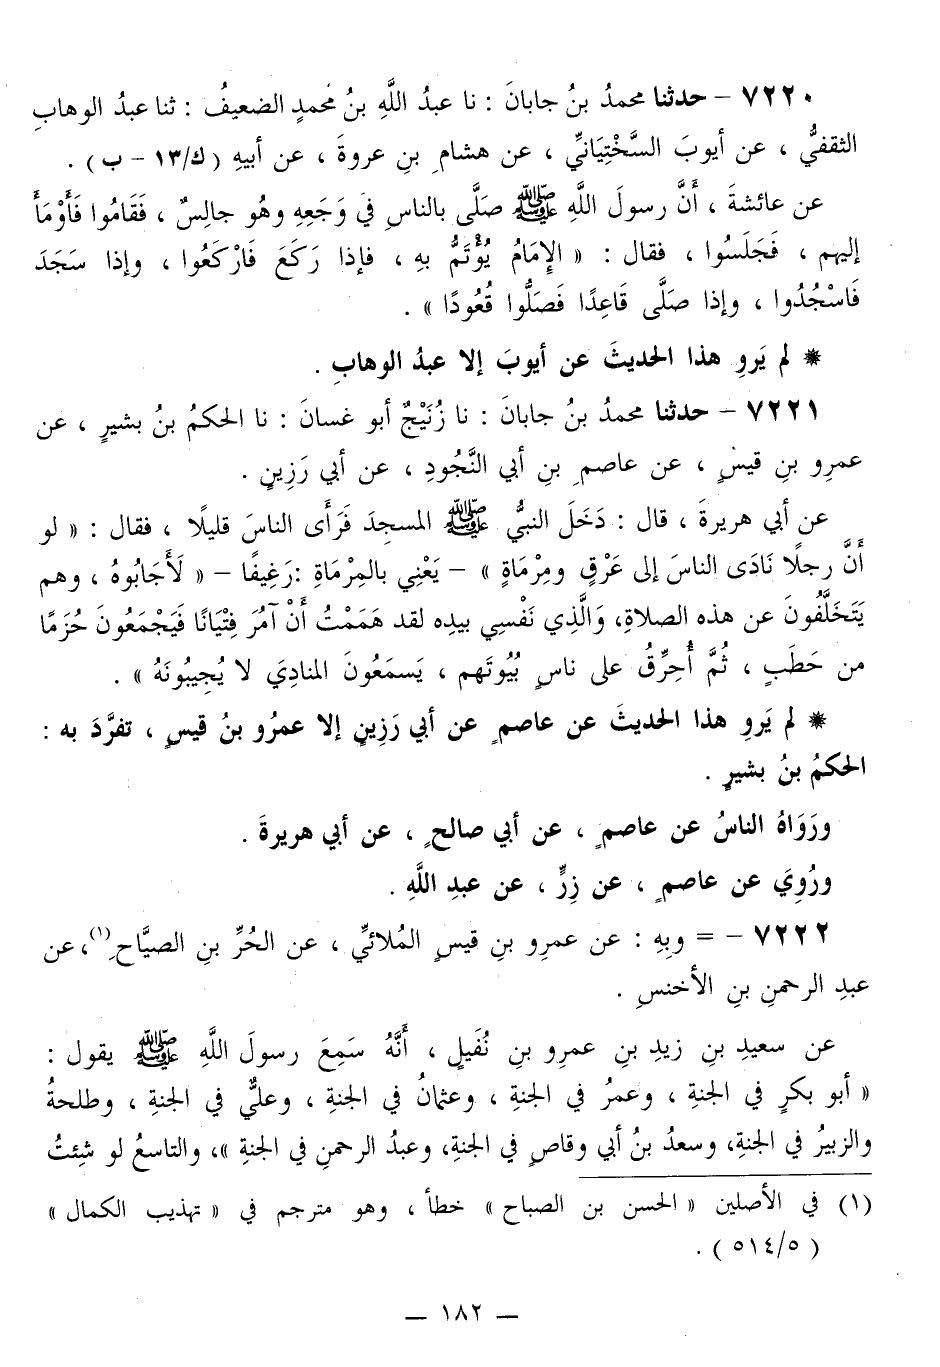 ٧٢٢٠ – حدثنا محمدُ بنُ جابانَ : نا عبدُ اللَّهِ بنُ محمدٍ الضعيفُ : ثنا عبدُ الوهابِ
الثقفيُّ ، عن أيوبَ السَّخْتِيَانيِّ ، عن هشامِ بنِ عروةَ ، عن أبيهِ ( ك/١٣ – ب ) .
عن عائشةَ ، أَنَّ رسولَ اللَّهِ ﷺ صلَّى بالناسِ في وَجَعِهِ وهُو جالِسٌ ، فَقَامُوا فَأَوْمَأَ
إليهم ، فَجَلَسُوا ، فقال : « الإِمَامُ يُؤْتَمُّ بهِ ، فإذا رَكَعَ فَارْكَعُوا ، وإذا سَجَدَ
فَاسْجُدُوا ، وإذا صَلَّى قَاعِدًا فَصَلُّوا قُعُودًا » .
* لم يَروِ هذا الحديثَ عن أيوبَ إلا عبدُ الوهابِ .
٧٢٢١ – حدثنا محمدُ بنُ جابانَ : نا زُنَيْجٌ أبو غسانَ : نا الحكمُ بنُ بشيرٍ ، عن
عمرِو بنِ قيسٍ ، عن عاصمِ بنِ أبي النَّجُودِ ، عن أبي رَزِينٍ .
عن أبي هريرةَ ، قال : دَخَلَ النبيُّ ﷺ المسجدَ فَرَأَى الناسَ قليلًا ، فقال : « لو
أَنَّ رجلًا نَادَى الناسَ إلى عَرْقٍ ومِرْمَاةٍ » – يَعْنِي بالمِرْمَاةِ :رَغِيفًا – « لَأَجَابُوهُ ، وهم
يَتَخَلَّفُونَ عن هذه الصلاةِ، وَالَّذِي نَفْسِي بيدِه لقد هَمَمْتُ أَنْ آمُرَ فِتْيَانًا فَيَجْمَعُونَ حُزَمًا
من حَطَبٍ ، ثُمَّ أُحرِّقُ على ناسٍ بُيُوتَهم ، يَسمَعُونَ المنادِيَ لا يُجِيبُونَهُ » .
* لم يَروِ هذا الحديثَ عن عاصمٍ عن أبي رَزِينٍ إلا عمرُو بنُ قيسٍ ، تفرَّدَ به :
الحكمُ بنُ بشيرٍ .
ورَوَاهُ الناسُ عن عاصمٍ ، عن أبي صالحٍ ، عن أبي هريرةَ .
ورُوِيَ عن عاصمٍ ، عن زِرٍّ ، عن عبدِ اللَّهِ .
٧٢٢٢ – = وبِهِ : عن عمرِو بنِ قيسٍ المُلائيِّ ، عن الحُرِّ بنِ الصيَّاحِ(١)، عن
عبدِ الرحمنِ بنِ الأخنسِ .
عن سعيدِ بنِ زيدِ بنِ عمرِو بنِ نُفَيلٍ ، أَنَّهُ سَمِعَ رسولَ اللَّهِ ﷺ يقول :
« أبو بكرٍ في الجنةِ ، وعمرُ في الجنةِ ، وعثمانُ في الجنةِ ، وعليٌّ في الجنةِ ، وطلحةُ
والزبيرُ في الجنةِ، وسعدُ بنُ أبي وقاصٍ في الجنةِ، وعبدُ الرحمنِ في الجنةِ »، والتاسعُ لو شِئتُ
(١) في الأصلين « الحسن بن الصباح » خطأ ، وهو مترجم في « تهذيب الكمال »
( ٥/٥١٤ ) .
– ١٨٢ –